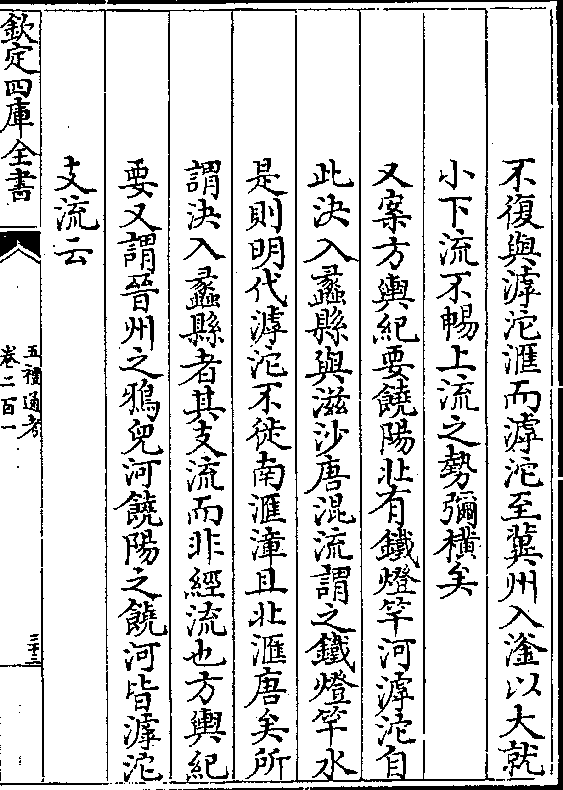 不復與滹沱滙而滹沱至冀州入滏以大就
小下流不暢上流之勢彌橫矣
又案方輿紀要饒陽北有鐵燈竿河滹沱自
此決入蠡縣與滋沙唐混流謂之鐵燈竿水
是則明代滹沱不徒南滙漳且北滙唐矣所
謂決入蠡縣者其支流而非經流也方輿紀
要又謂晉州之鴉兒河饒陽之饒河皆滹沱
支流云
欽定四庫全書
五禮通考
卷二百一
三十三